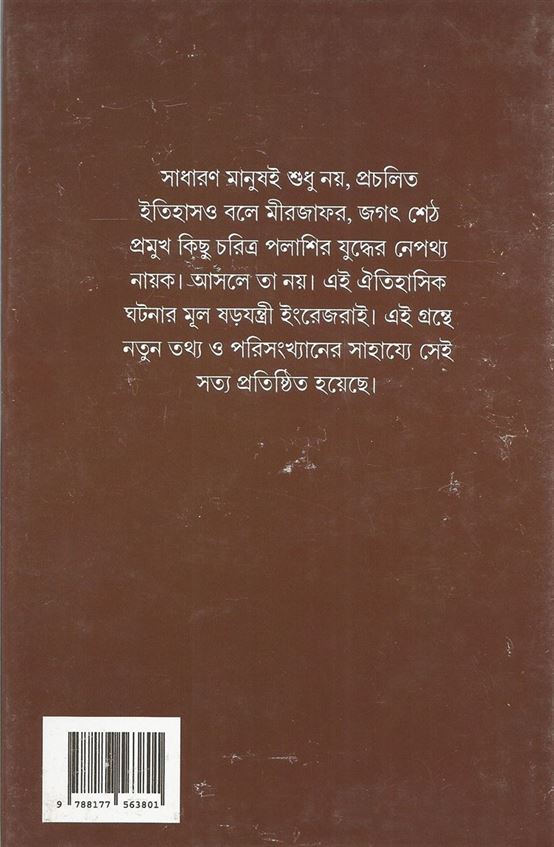 সাধারণ মানুষই শুধু নয়, প্রচলিত
ইতিহাসও বলে মীরজাফর, জগৎ শেঠ
প্রমুখ কিছু চরিত্র পলাশির যুদ্ধের নেপথ্য
নায়ক। আসলে তা নয়। এই ঐতিহাসিক
ঘটনার মূল ষড়যন্ত্রী ইংরেজরাই। এই গ্রন্থে
নতুন তথ্য ও পরিসংখ্যানের সাহায্যে সেই
সত্য প্রতিষ্ঠিত হয়েছে।
9 788177 563801